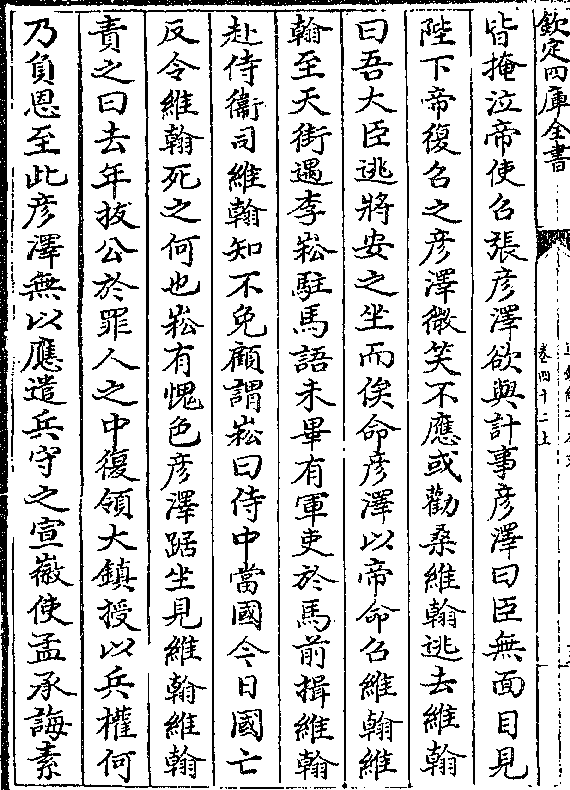 欽定四庫全書
卷四十二上
皆掩泣帝使召張彦澤欲與計事彦澤曰臣無面目見
陛下帝復召之彦澤微笑不應或勸桑維翰逃去維翰
曰吾大臣逃將安之坐而俟命彦澤以帝命召維翰維
翰至天街遇李崧駐馬語未畢有軍吏於馬前揖維翰
赴侍衞司維翰知不免顧謂崧曰侍中當國今日國亡
反令維翰死之何也崧有愧色彦澤踞坐見維翰維翰
責之曰去年拔公於罪人之中復領大鎮授以兵權何
乃負恩至此彦澤無以應遣兵守之宣徽使孟承誨素